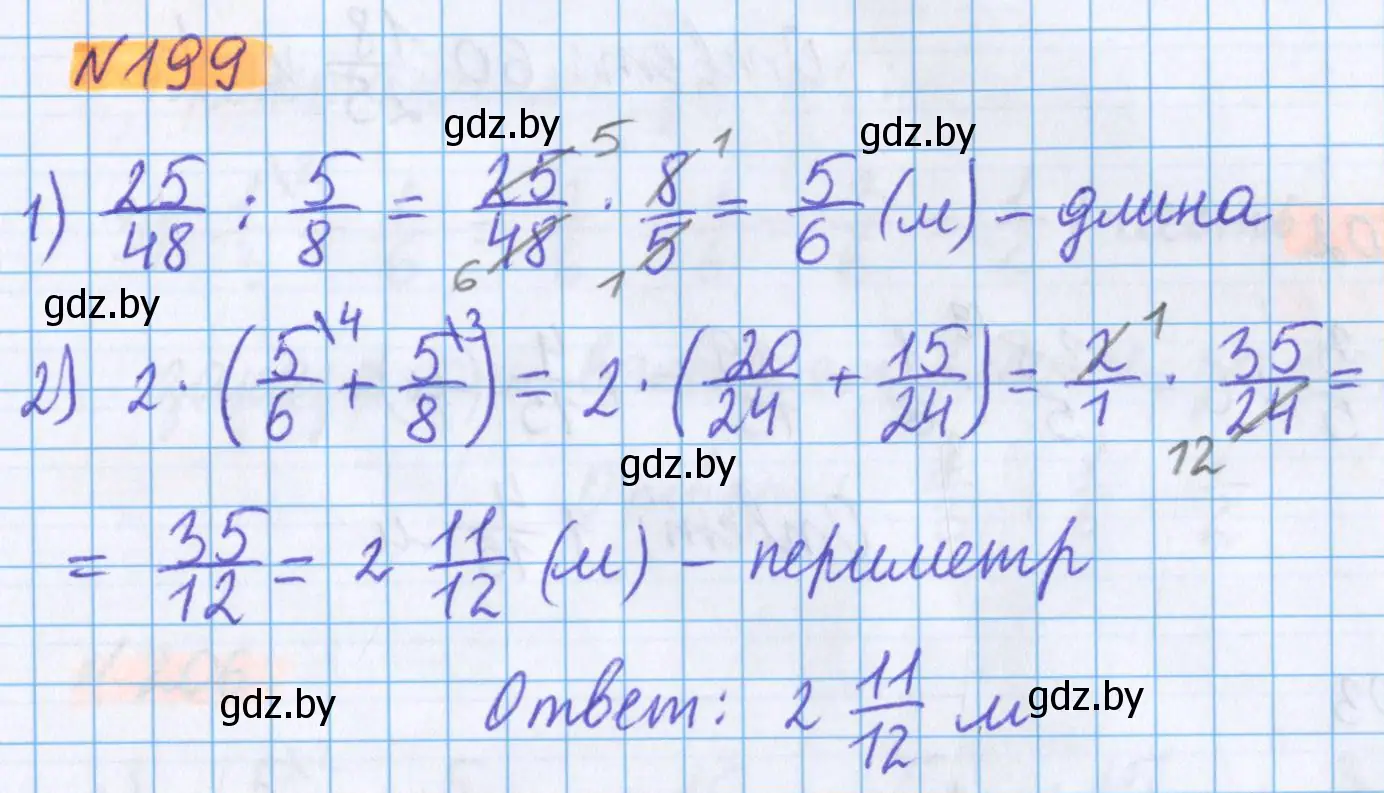 №199
gdz.by gdz.by
1) 25/48 : 5/8 = 25/48 5 6 · 8/5 1 1 = 5/6 (м) - длина
gdz.by
2) 2 · (5/6 \4 + 5/8 \3) = 2 · (20/24 + 15/24) = 2/1 1 · 35/24 12 =
gdz.by
= 35/12 = 2 11/12 (м) - периметр
gdz.by Ответ: 2 11/12 м gdz.by